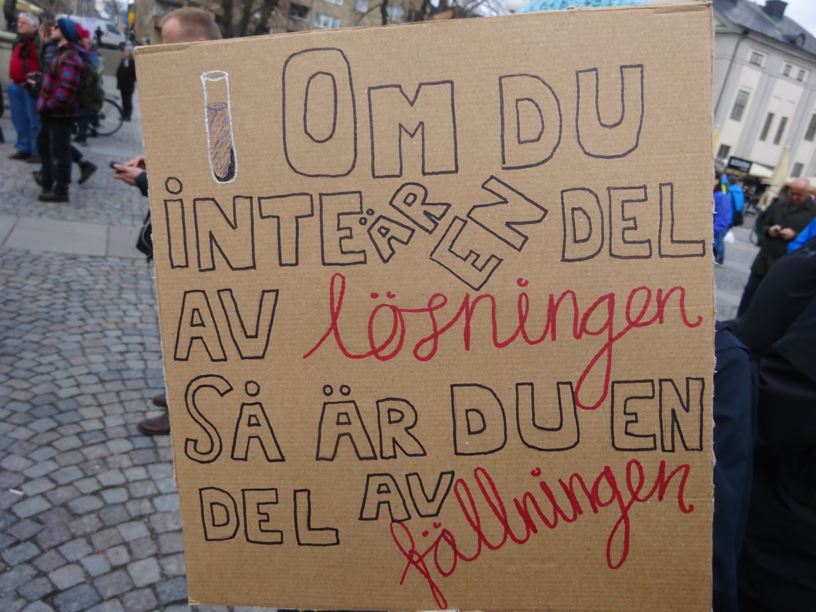 OM DU
INTE ÄR EN DEL
AV lösningen
SÅ ÄR DU EN
DEL AV fällningen